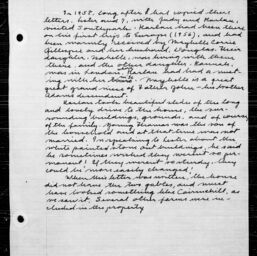 In 1958, long after I had copied these
letters, Lester and I, with Judy and Karlan,
visited Southpark. Karlan had been there
on his first trip to Europe (1956), and had
been warmly received by Maybelle Carrie
Gillespie and her husband, Douglas. Their
daughter, Isabelle, was living with them
there and the other daughter, Hannah,
was in London. Karlan had had a
with her. Maybelle is a great
great grand niece of Father John - his brother
Adam's descendant.
Karlan took beautiful slides of the long
and lovely drive to the house, the sur-
rounding buildings, grounds, and of course
of the family. Young Thomas was the son of
the household and at that time was not
married. In speaking to Lester about the
white painted stone out buildings, he said
he sometimes wished they weren't so per-
manent! If they weren't so sturdy, they
could be more easily changed!
When this letter was written, the house
did not have the two gables, and must
have looked something like Cairnhill, as
we saw it. Several other farms were in-
cluded in the property